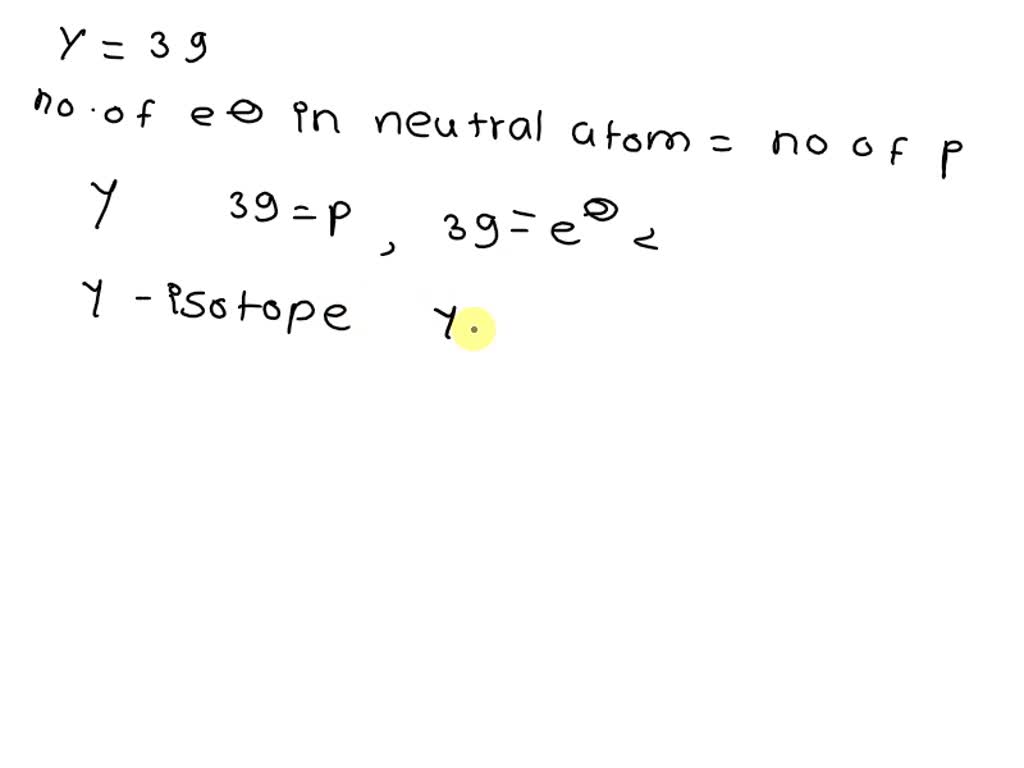 Y = 39
no. of e⊖ in neutral atom = no of p
Y 39 = p , 39 = e⊖ <
Y - isotope Y